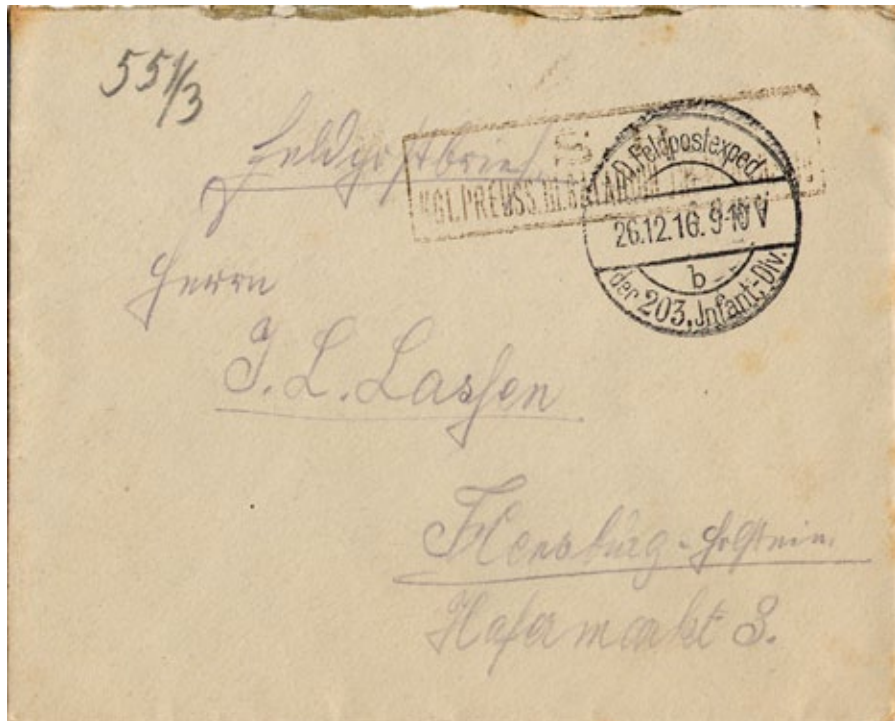 551/3
Feldpostbrief.
S.
KGL.PREUSS. III. BATAILLON
K.D. Feldpostexped.
26.12.16. 9-10 V
b
der 203. Infant.-Div.
Herrn
J. L. Lassen
Flensburg-Holstein.
Hafermarkt 3.